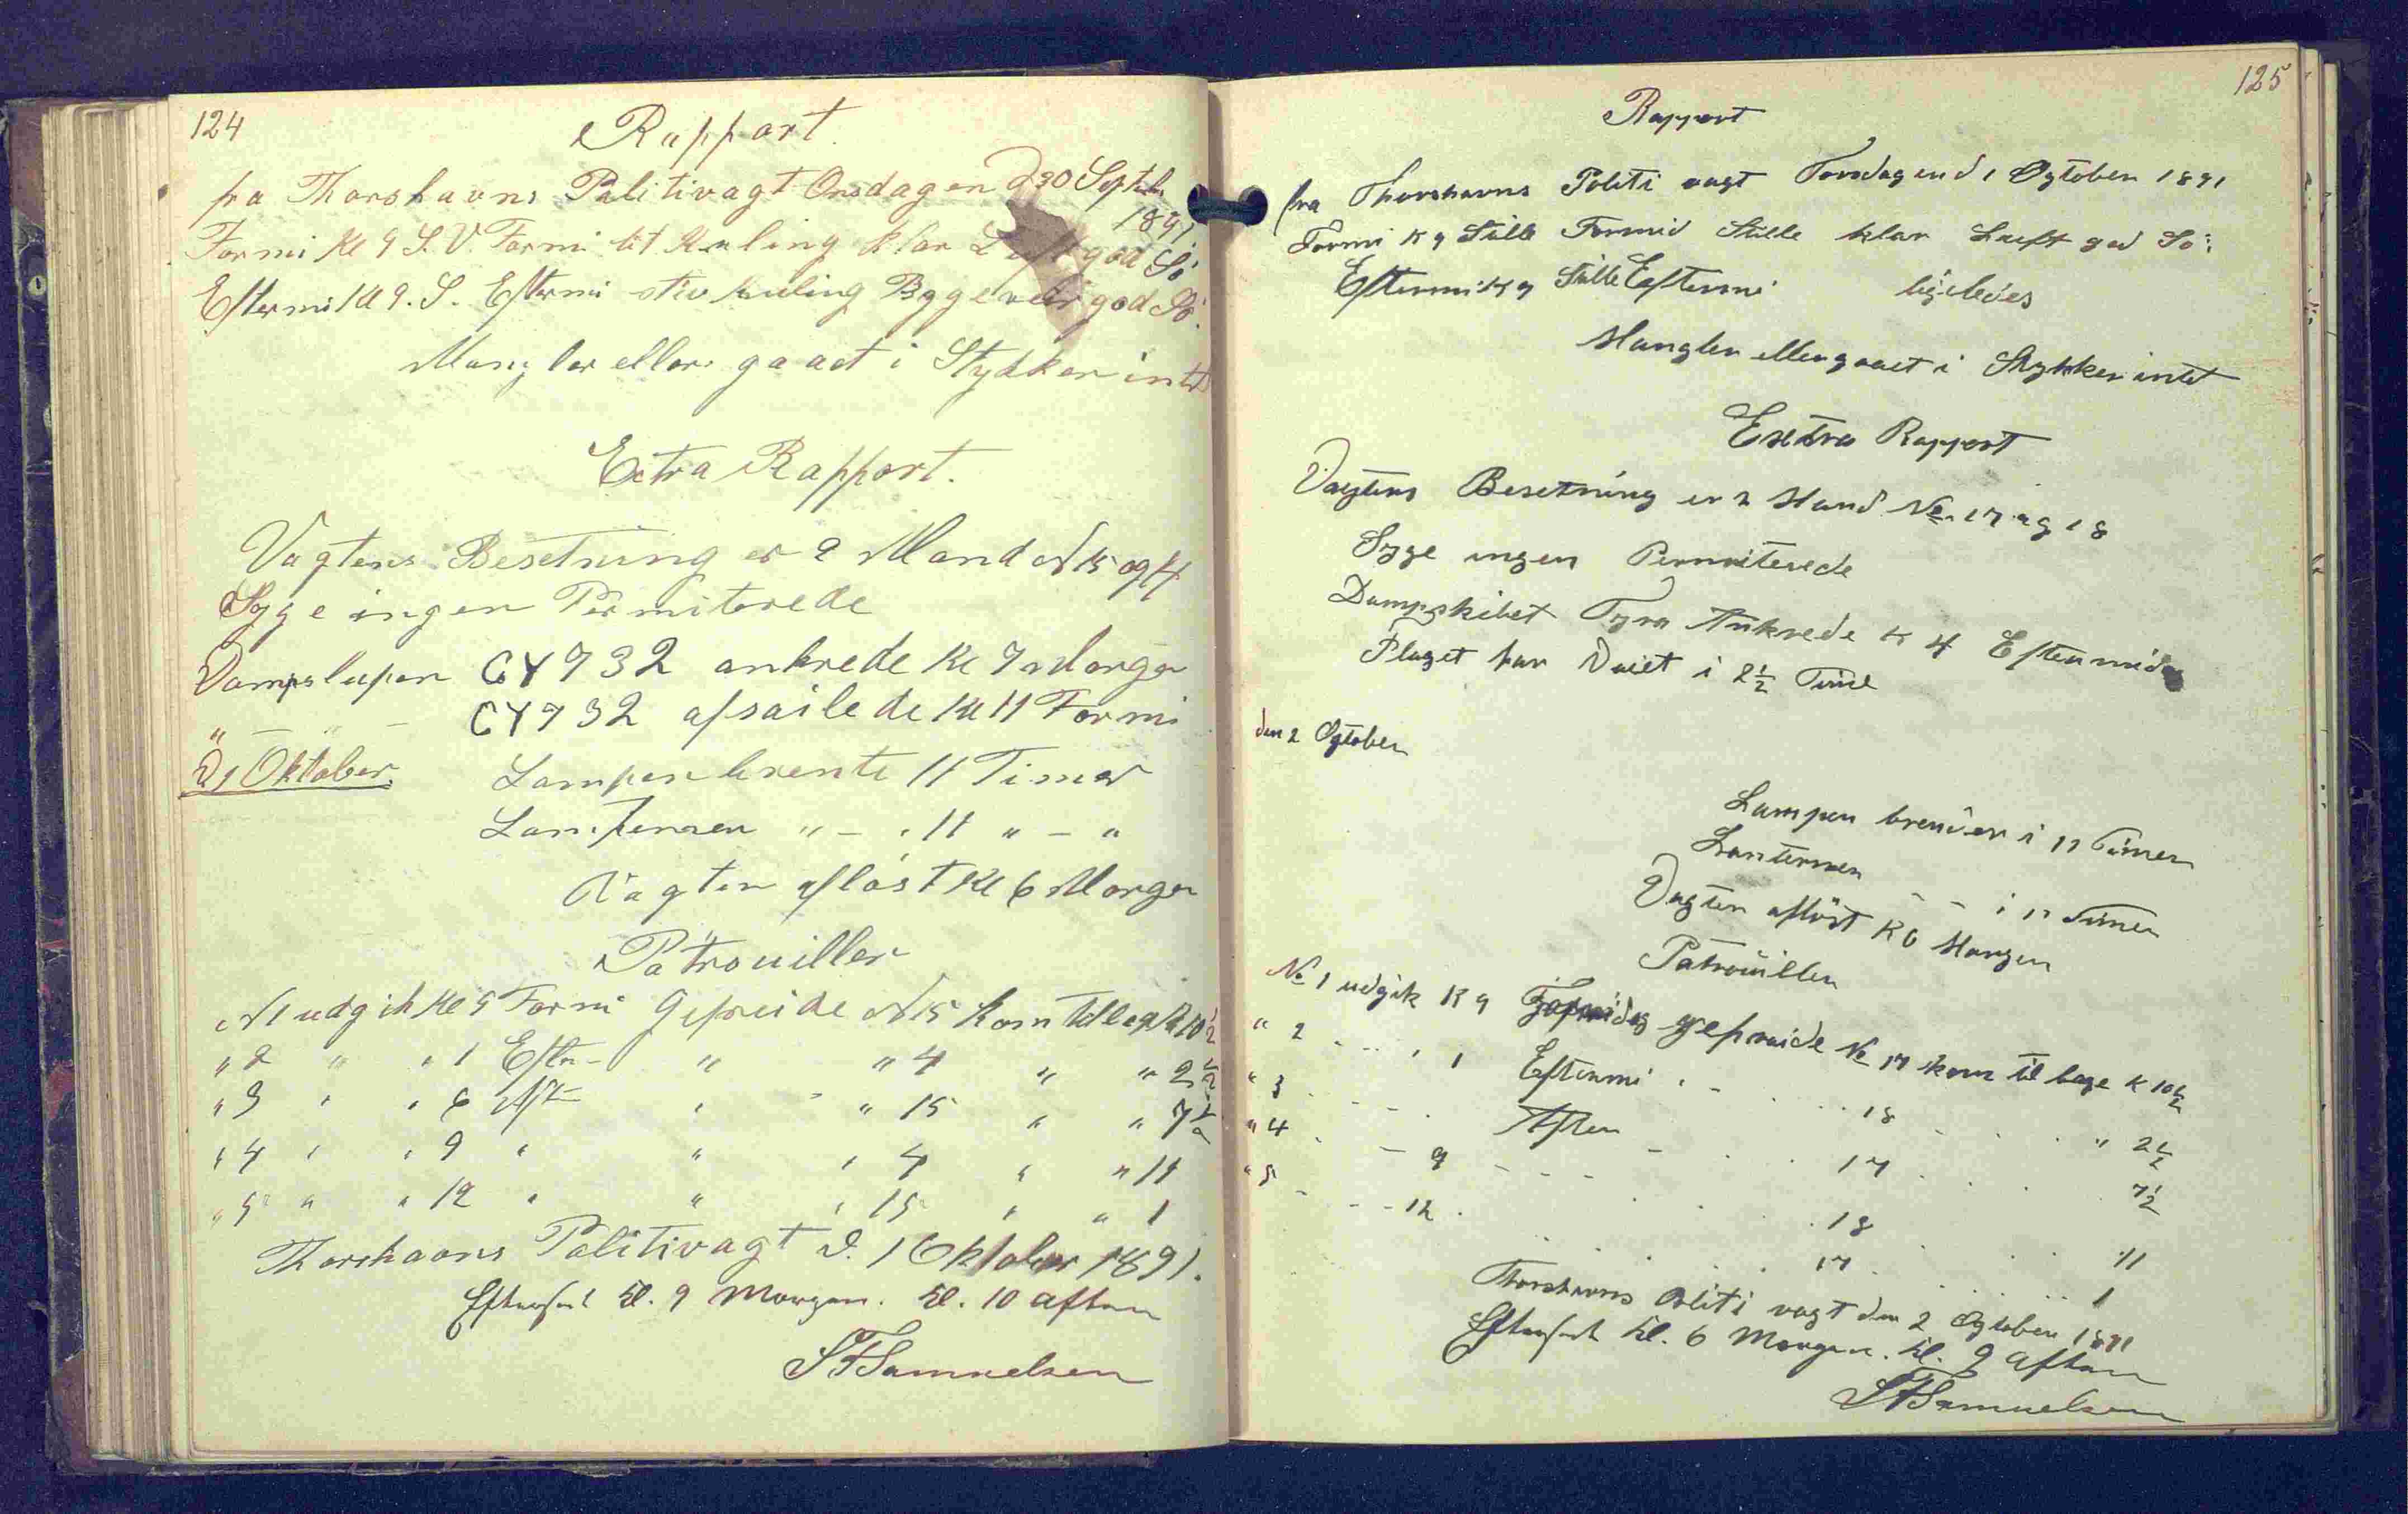 124
Rapport.
fra Thorshavns Politivagt Onsdagen d 30 Septbr
1891.
Formi Kl 9 S.V. Formi lit Kuling klar Luft god Sö
Eftermi Kl 9. S. Eftermi stiv kuling Byggeveir god Sö.
Mangler eller gaaet i Stykker intet
Extra Rapport.
Vagtens Besetning er 2 Mand N 15 og 4
Syge ingen Permiterede
Dampslupen GY 932 ankrede Kl 7 Morgen
" — " — GY 932 afsailede Kl 11 Formi
D 1 Oktober. Lampen brente 11 Timer
Lanternen " – " 11 " – "
Vagten aflöst Kl 6 Morgen
Patrouiller
N 1 udgik Kl 9 Formi Gefreide N 15 kom tilbage Kl 10½
" 2 " " 1 Eftr– " " 4 " " 2½
" 3 " " 6 Aft– " " 15 " " 7½
" 4 " " 9 " " " 4 " " 11
" 5 " " 12 " " " 15 " " 1
Thorshavns Politivagt d. 1 Oktober 1891.
Efterseet Kl. 9 Morgen. Kl. 10 aften
SFSamuelsen
125
Rapport
fra Thorshavns Politi vagt Torsdagen d 1 Ogtober 1891
Formi K 9 Stille Formid Stille klar Luft god Sö
Eftermi K 9 Stille Eftermi ligeledes
Mangler eller gaaet i Stykker intet
Extra Rapport
Vagtens Besetning er 2 Mand No 17 og 18
Syge ingen Permiterede
Dampskibet Tyra Ankrede K 4 Eftermidag
Flaget har Vaiet i 2½ Time
den 2 Ogtober
Lampen brender i 11 Timer
Lanternen – – i 11 Timer
Vagten aflöst K 6 Morgen
Patrouiller
No 1 udgik K 9 Formidag gefraide No 17 kom til bage K 10½
" 2 - - - 1 Eftermi - - 18 - - " 2½
" 3 - - - Aften - - 17 - - 7½
" 4 - - 9 - - - 18 - - 11
" 5 - - 12 - - - 17 - - 1
Thorshavns Politi vagt den 2 Ogtober 1891
Efterseet Kl. 6 Morgen. Kl. 9 aften
SFSamuelsen